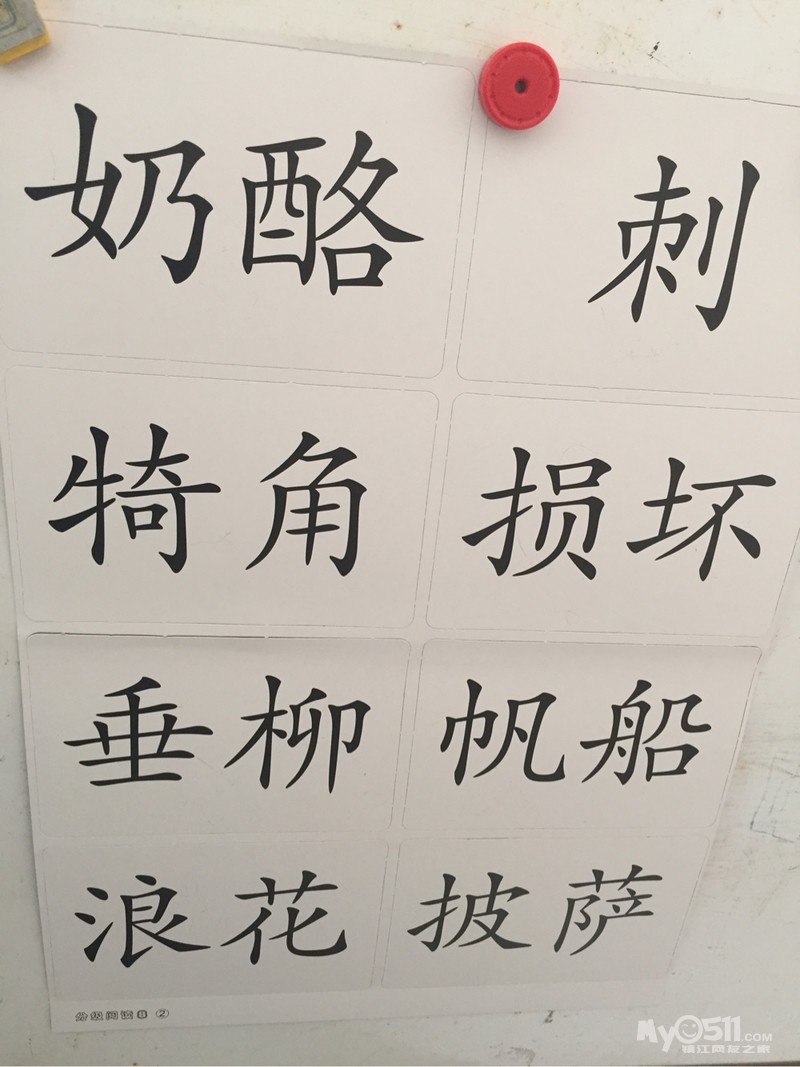 奶酪 刺
犄角 损坏
垂柳 帆船
浪花 披萨
分级阅读B ②
My0511.COM
镇江网友之家